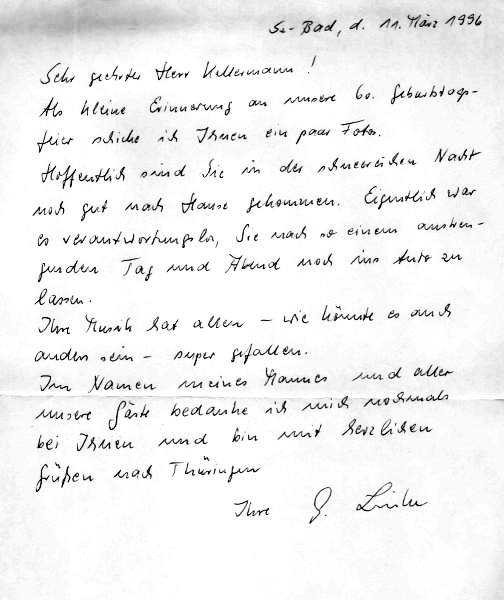 Sa-Bad, d. 11. März 1996
Sehr geehrter Herr Kellermann!
Als kleine Erinnerung an unsere 60. Geburtstags-
feier schicke ich Ihnen ein paar Fotos.
Hoffentlich sind Sie in der schneereichen Nacht
noch gut nach Hause gekommen. Eigentlich war
es verantwortungslos, Sie nach so einem anstren-
genden Tag und Abend noch ins Auto zu
lassen.
Ihre Musik hat allen – wie könnte es auch
anders sein – super gefallen.
Im Namen meines Mannes und aller
unsere Gäste bedanke ich mich nochmals
bei Ihnen und bin mit herzlichen
Grüßen nach Thüringen
Ihre G.